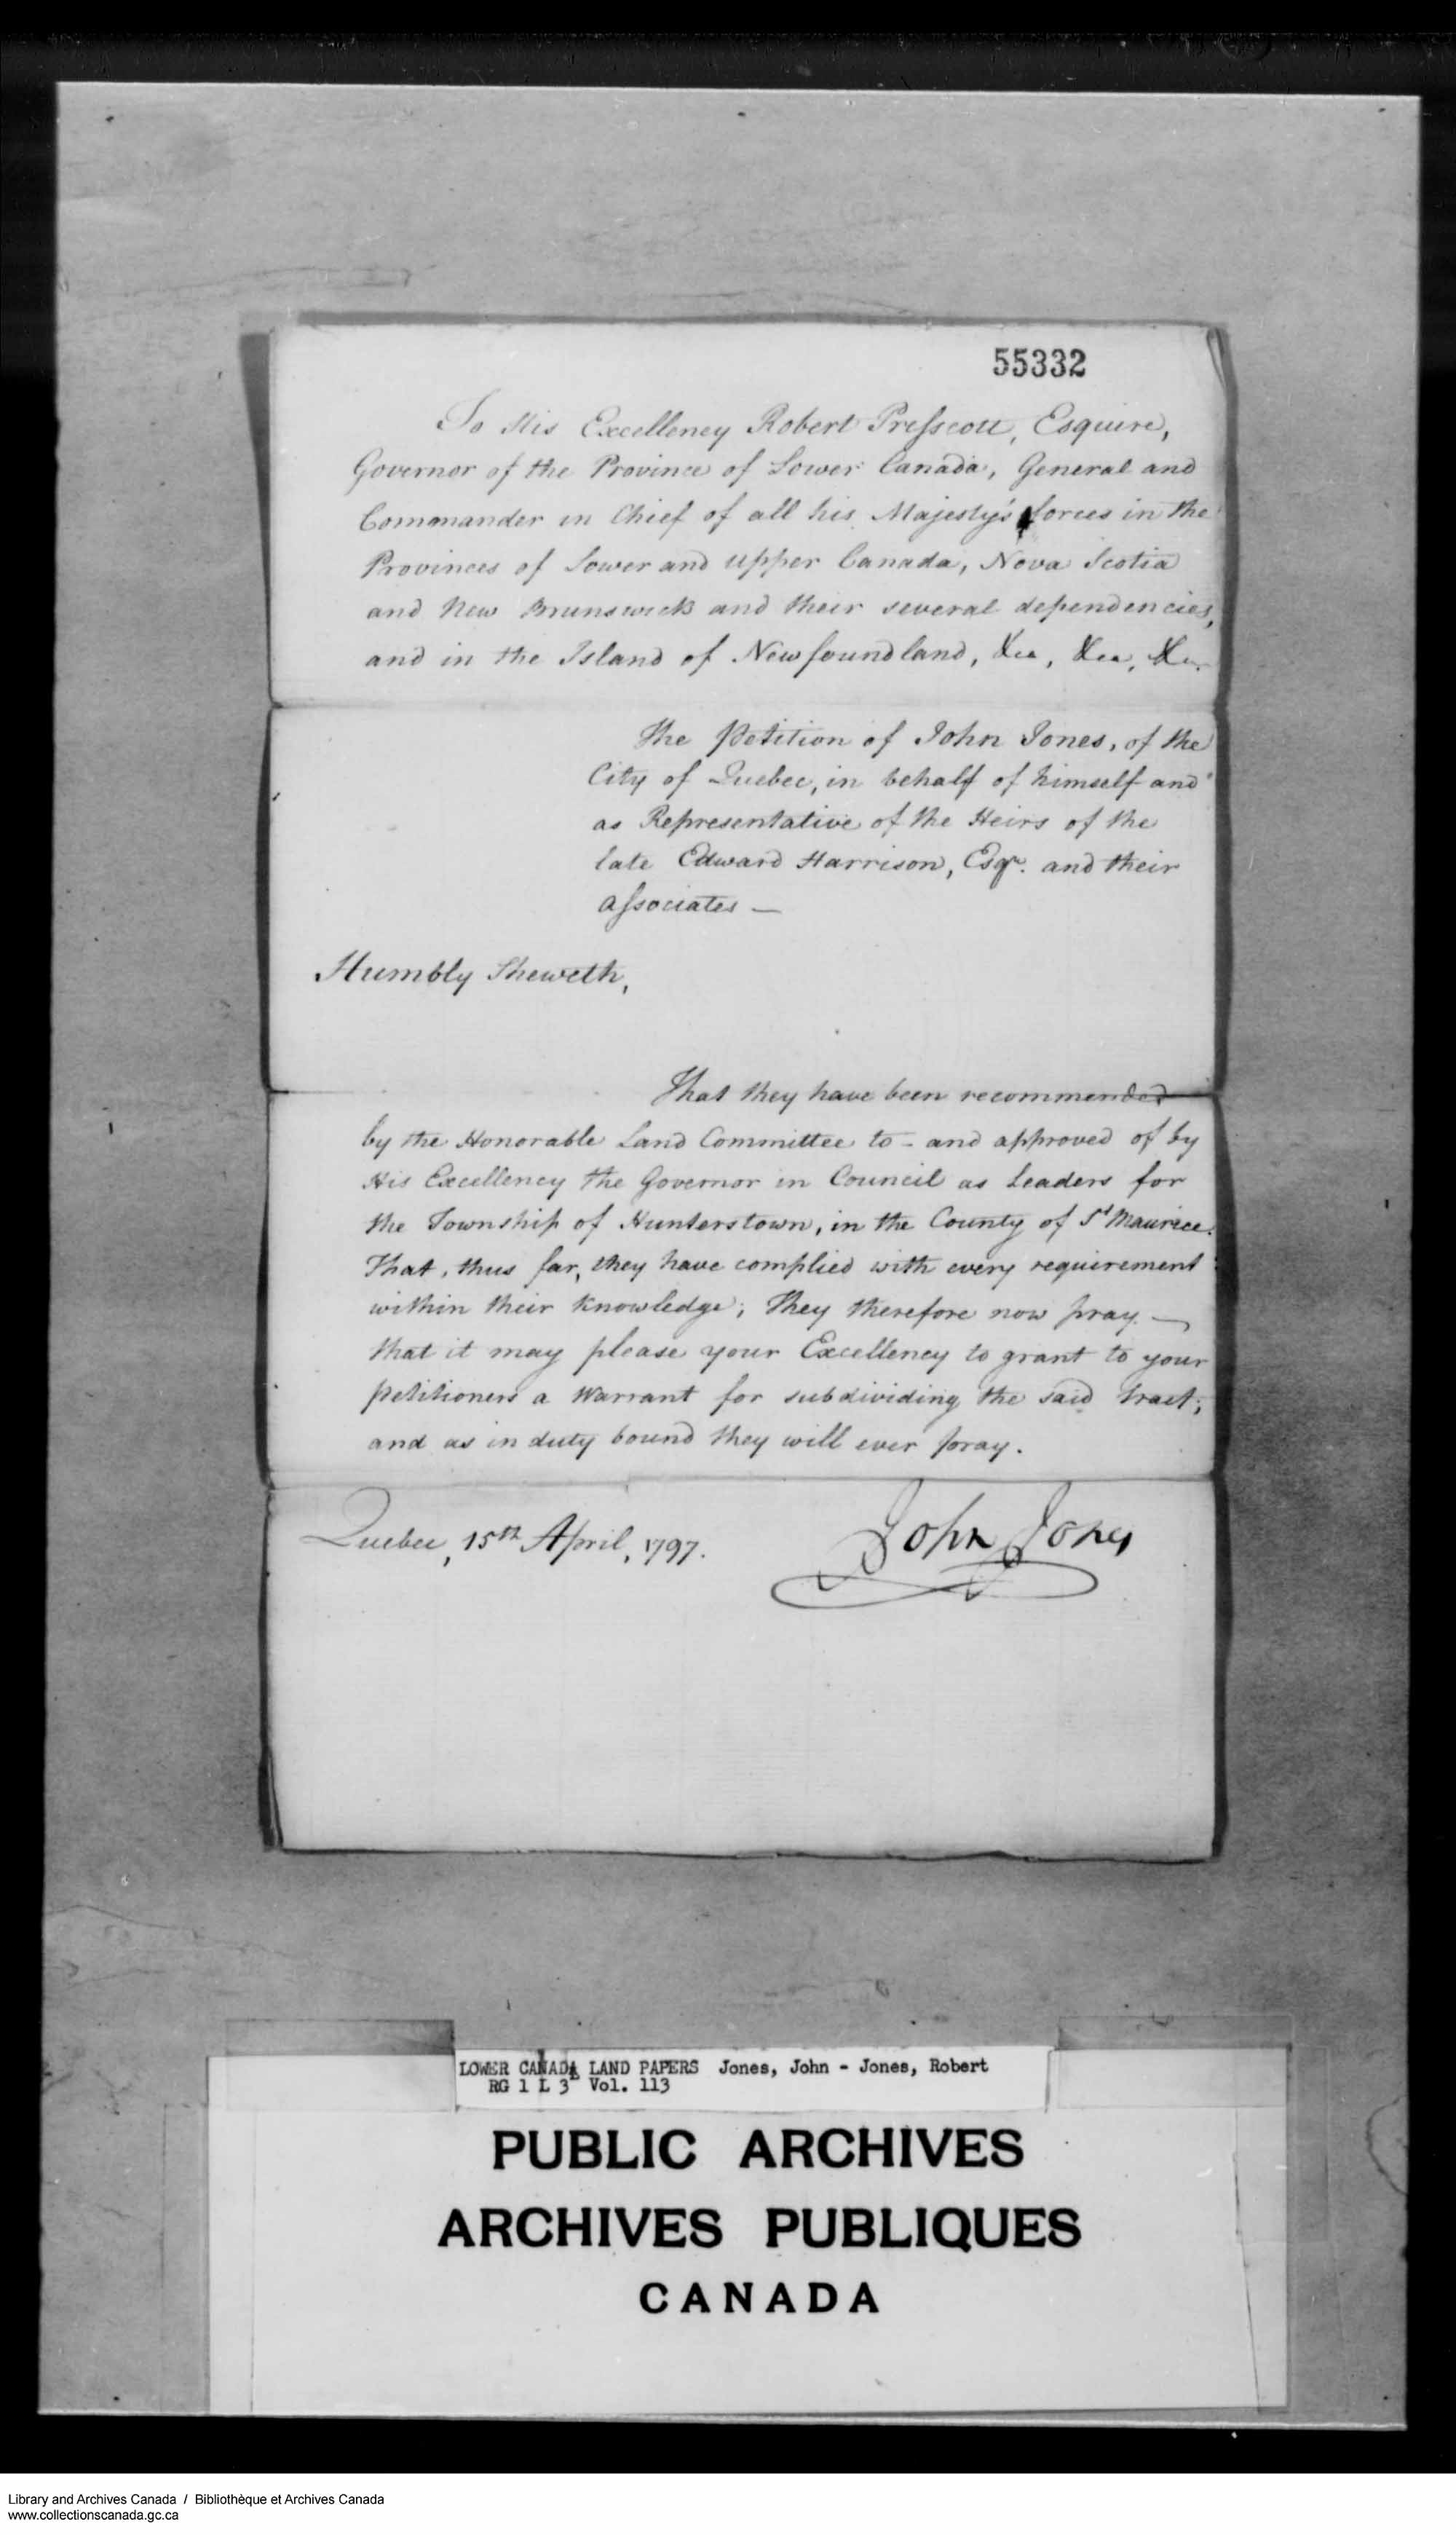 55332
To His Excellency Robert Presscott, Esquire,
Governor of the Province of Lower Canada, General and
Commander in Chief of all his Majesty's forces in the
Provinces of Lower and Upper Canada, Nova Scotia
and New Brunswick and their several dependencies,
and in the Island of Newfoundland, &ca, &ca, &ca.
The Petition of John Jones, of the
City of Quebec, in behalf of himself and
as Representative of the Heirs of the
late Edward Harrison, Esqr. and their
associates —
Humbly Sheweth,
That they have been recommended
by the Honorable Land Committee to - and approved of by
His Excellency the Governor in Council as Leaders for
the Township of Hunterstown, in the County of St Maurice.
That, thus far, they have complied with every requirement
within their knowledge; They therefore now pray —
that it may please your Excellency to grant to your
petitioners a Warrant for subdividing the said tract;
and as in duty bound they will ever pray.
Quebec, 15th April, 1797.
John Jones
LOWER CANADA LAND PAPERS Jones, John - Jones, Robert
RG 1 L 3L Vol. 113
PUBLIC ARCHIVES
ARCHIVES PUBLIQUES
CANADA
Library and Archives Canada / Bibliothèque et Archives Canada
www.collectionscanada.gc.ca